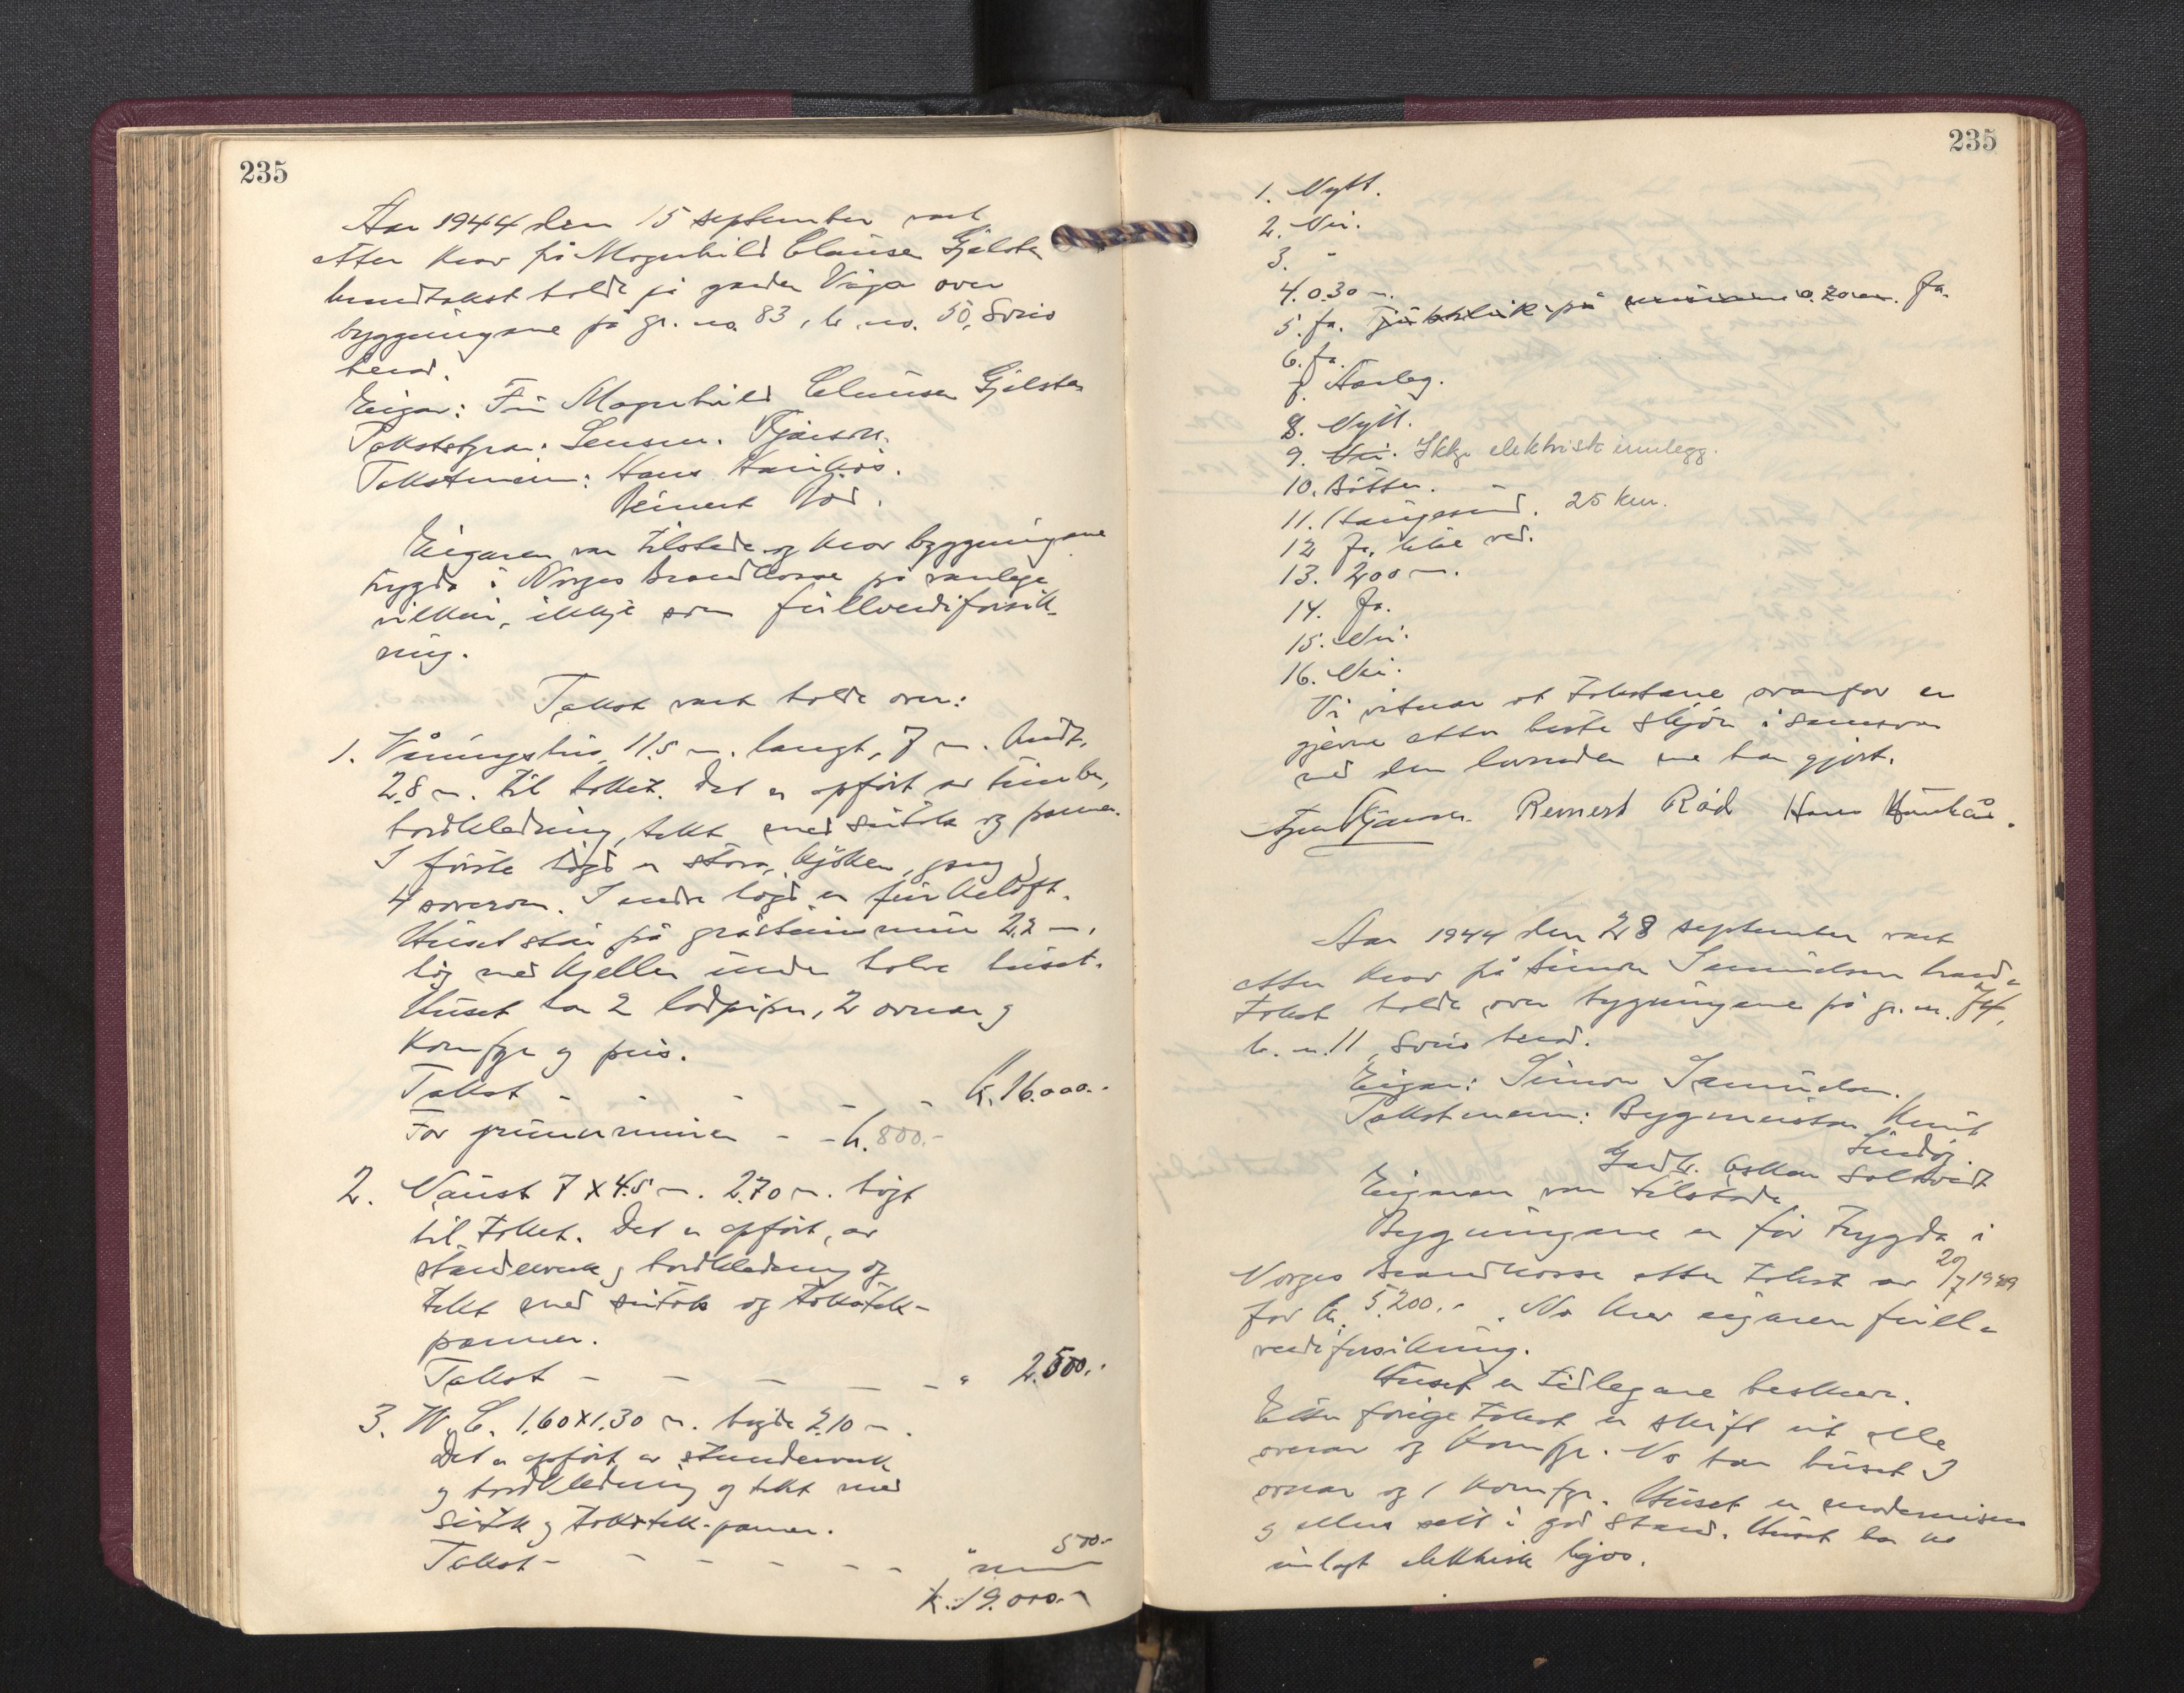 235
Aar 1944 den 15 september vart
etter krav frå Magnhild Clausen Gjelsten
brandtakst halde på garden Våga over
byggningane på gr. no. 83, br. no. 50, Sveio
herad.
Eigar: Fru Magnhild Clausen Gjelsten
Takstefyrar: Lensm.
Takstmenn: Hans
Reinert Rød.
Eigaren var tilstede og krav byggningane
trygda i Norges Brandkasse på vanlege
vilkår, ikkje som fullverdiforsik-
ring.
Takst vart halde over:
1. Våningshus, 11,5 m. langt, 7 m. breidt,
2.8 m. til taket. Det er opført av timber,
bordkledning, tekt med sutak og panner.
I første høgd er stova, kjøken, gang og
4 soverom. I andre høgd er
Huset står på gråsteinsmur 2.2 m.
høg med kjeller under halve huset.
Huset har 2 ladpipur, 2 omnar og
Komfyr og peis.
Takst - - - - - Kr. 16.000.-
For grunnmuren - - kr. 800.-
2. Naust 7 x 4.5 m. 2.70 m. høgt
til taket. Det er opført, av
standerverk og bordkledning og
tekt med sutak og taksten-
panner.
Takst - - - - - " 2.500.-
3. W.C. 1.60 x 1.30 m. høgde 2.10 m.
Det er opført av standerverk
og bordkledning og tekt med
sutak og panner.
Takst - - - - - - " 500.-
Kr. 19.000.-
235
1. Nytt.
2. Nei.
3. -
4. 0.30 m.
5. Ja. på 0.20 cm. Ja.
6. Ja.
7. Farleg.
8. Nytt.
9. Nei. Ikkje elektrisk innlegg.
10. Bøtter. -
11. Haugesund. 25 km.
12. Ja, ved.
13. 200 m.
14. Ja.
15. Nei.
16. Nei.
Vi vitnar at takstane ovanfor er
gjevne etter beste skjøn i samsvar
med den lovnaden me har gjort.
Reinert Rød Hans
Aar 1944 den 28 september vart
etter krav frå Simon Samuelsen brand-
takst halde over bygningane på gr. nr. 74,
br. nr. 11, Sveio herad.
Eigar: Simon Samuelsen.
Takstmenn: Bygmeister Knut
Lindøy
Gardbr. Oskar Saltveit
Eigaren var tilstade.
Bygningane er før trygda i
Norges Brandkasse etter takst av 20/7 1929
for kr. 5.200.-. No krev eigaren full-
verdiforsikring.
Huset er tidlegare beskreve.
Etter forige takst er skift ut alle
omnar og Komfyr. No har huset 3
omnar og 1 komfyr. Huset er modernisera
og ellers sett i god stand. Huset har no
innlagt elektrisk ljos.